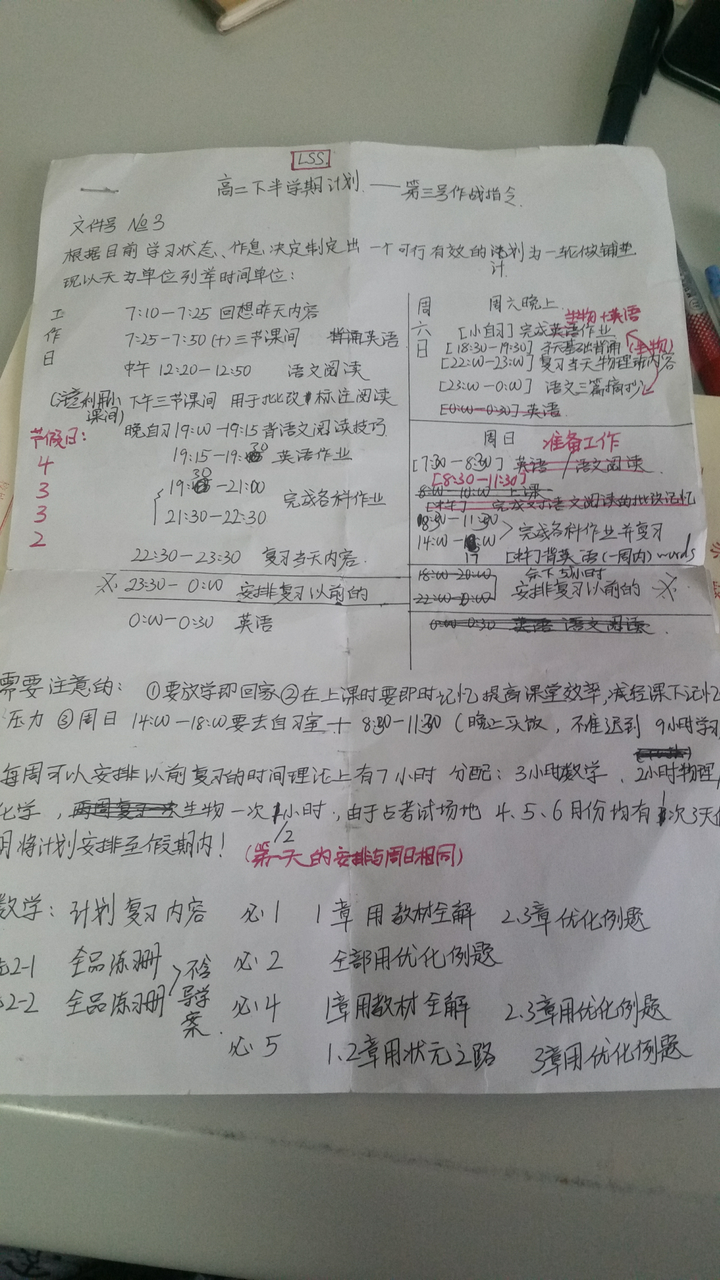 LSS
高二下半学期计划——第三号作战指令
文件号 No3
根据目前学习状态、作息,决定制定出一个可行有效的计划为一轮做铺垫
现以天为单位列举时间单位:
工作日
7:10—7:25 回想昨天内容
7:25—7:50(+)三节课间 背诵英语
中午 12:20—12:50 语文阅读
(注意利用小课间)
下午三节课间 用于批改 标注阅读
晚自习19:00—19:15背语文阅读技巧
19:15—19:30 英语作业
19:30—21:00
21:30—22:30
完成各科作业
22:30—23:30 复习当天内容
※ 23:30—0:00 安排复习以前的
0:00—0:30 英语
节假日:
4
3
3
2
周六日
周六晚上
生物+英语
[小自习]完成英语作业
[18:30—19:30] 背诵(生物)
[22:00—23:00] 复习当天物理 内容
[23:00—0:00] 语文三篇摘抄
[0:00—0:30] 英语
周日 准备工作
[7:30—8:30] 英语/语文阅读
[8:30—11:30]
8:00—10:00 上课
8:30—11:30
14:00—17
完成各科作业并复习
[中午]背英语(一周内)words
18:00—20:00
22:00—0:00
余下5小时
安排复习以前的 ※
0:00—0:30 英语 语文阅读
需要注意的: ①要放学即回家②在上课时要即时记忆提高课堂效率,减轻课下记忆
压力 ③周日 14:00—18:00要去自习室+ 8:30—11:30(晚上买饭,不准迟到 9小时学习
每周可以安排以前复习的时间理论上有7小时 分配:3小时数学、2小时物理
化学,两周复习一次生物一次1/2小时,由于占考试场地 4、5、6月份均有1次3天
将计划安排至假期内!
(第一天的安排与周日相同)
数学: 计划复习内容 必1 1章用教材全解 2.3章优化例题
2-1 全品练习册 必2 全部用优化例题
2-2 全品练习册 不含导学案 必4 1章用教材全解 2.3章用优化例题
必5 1.2章用状元之路 3章用优化例题